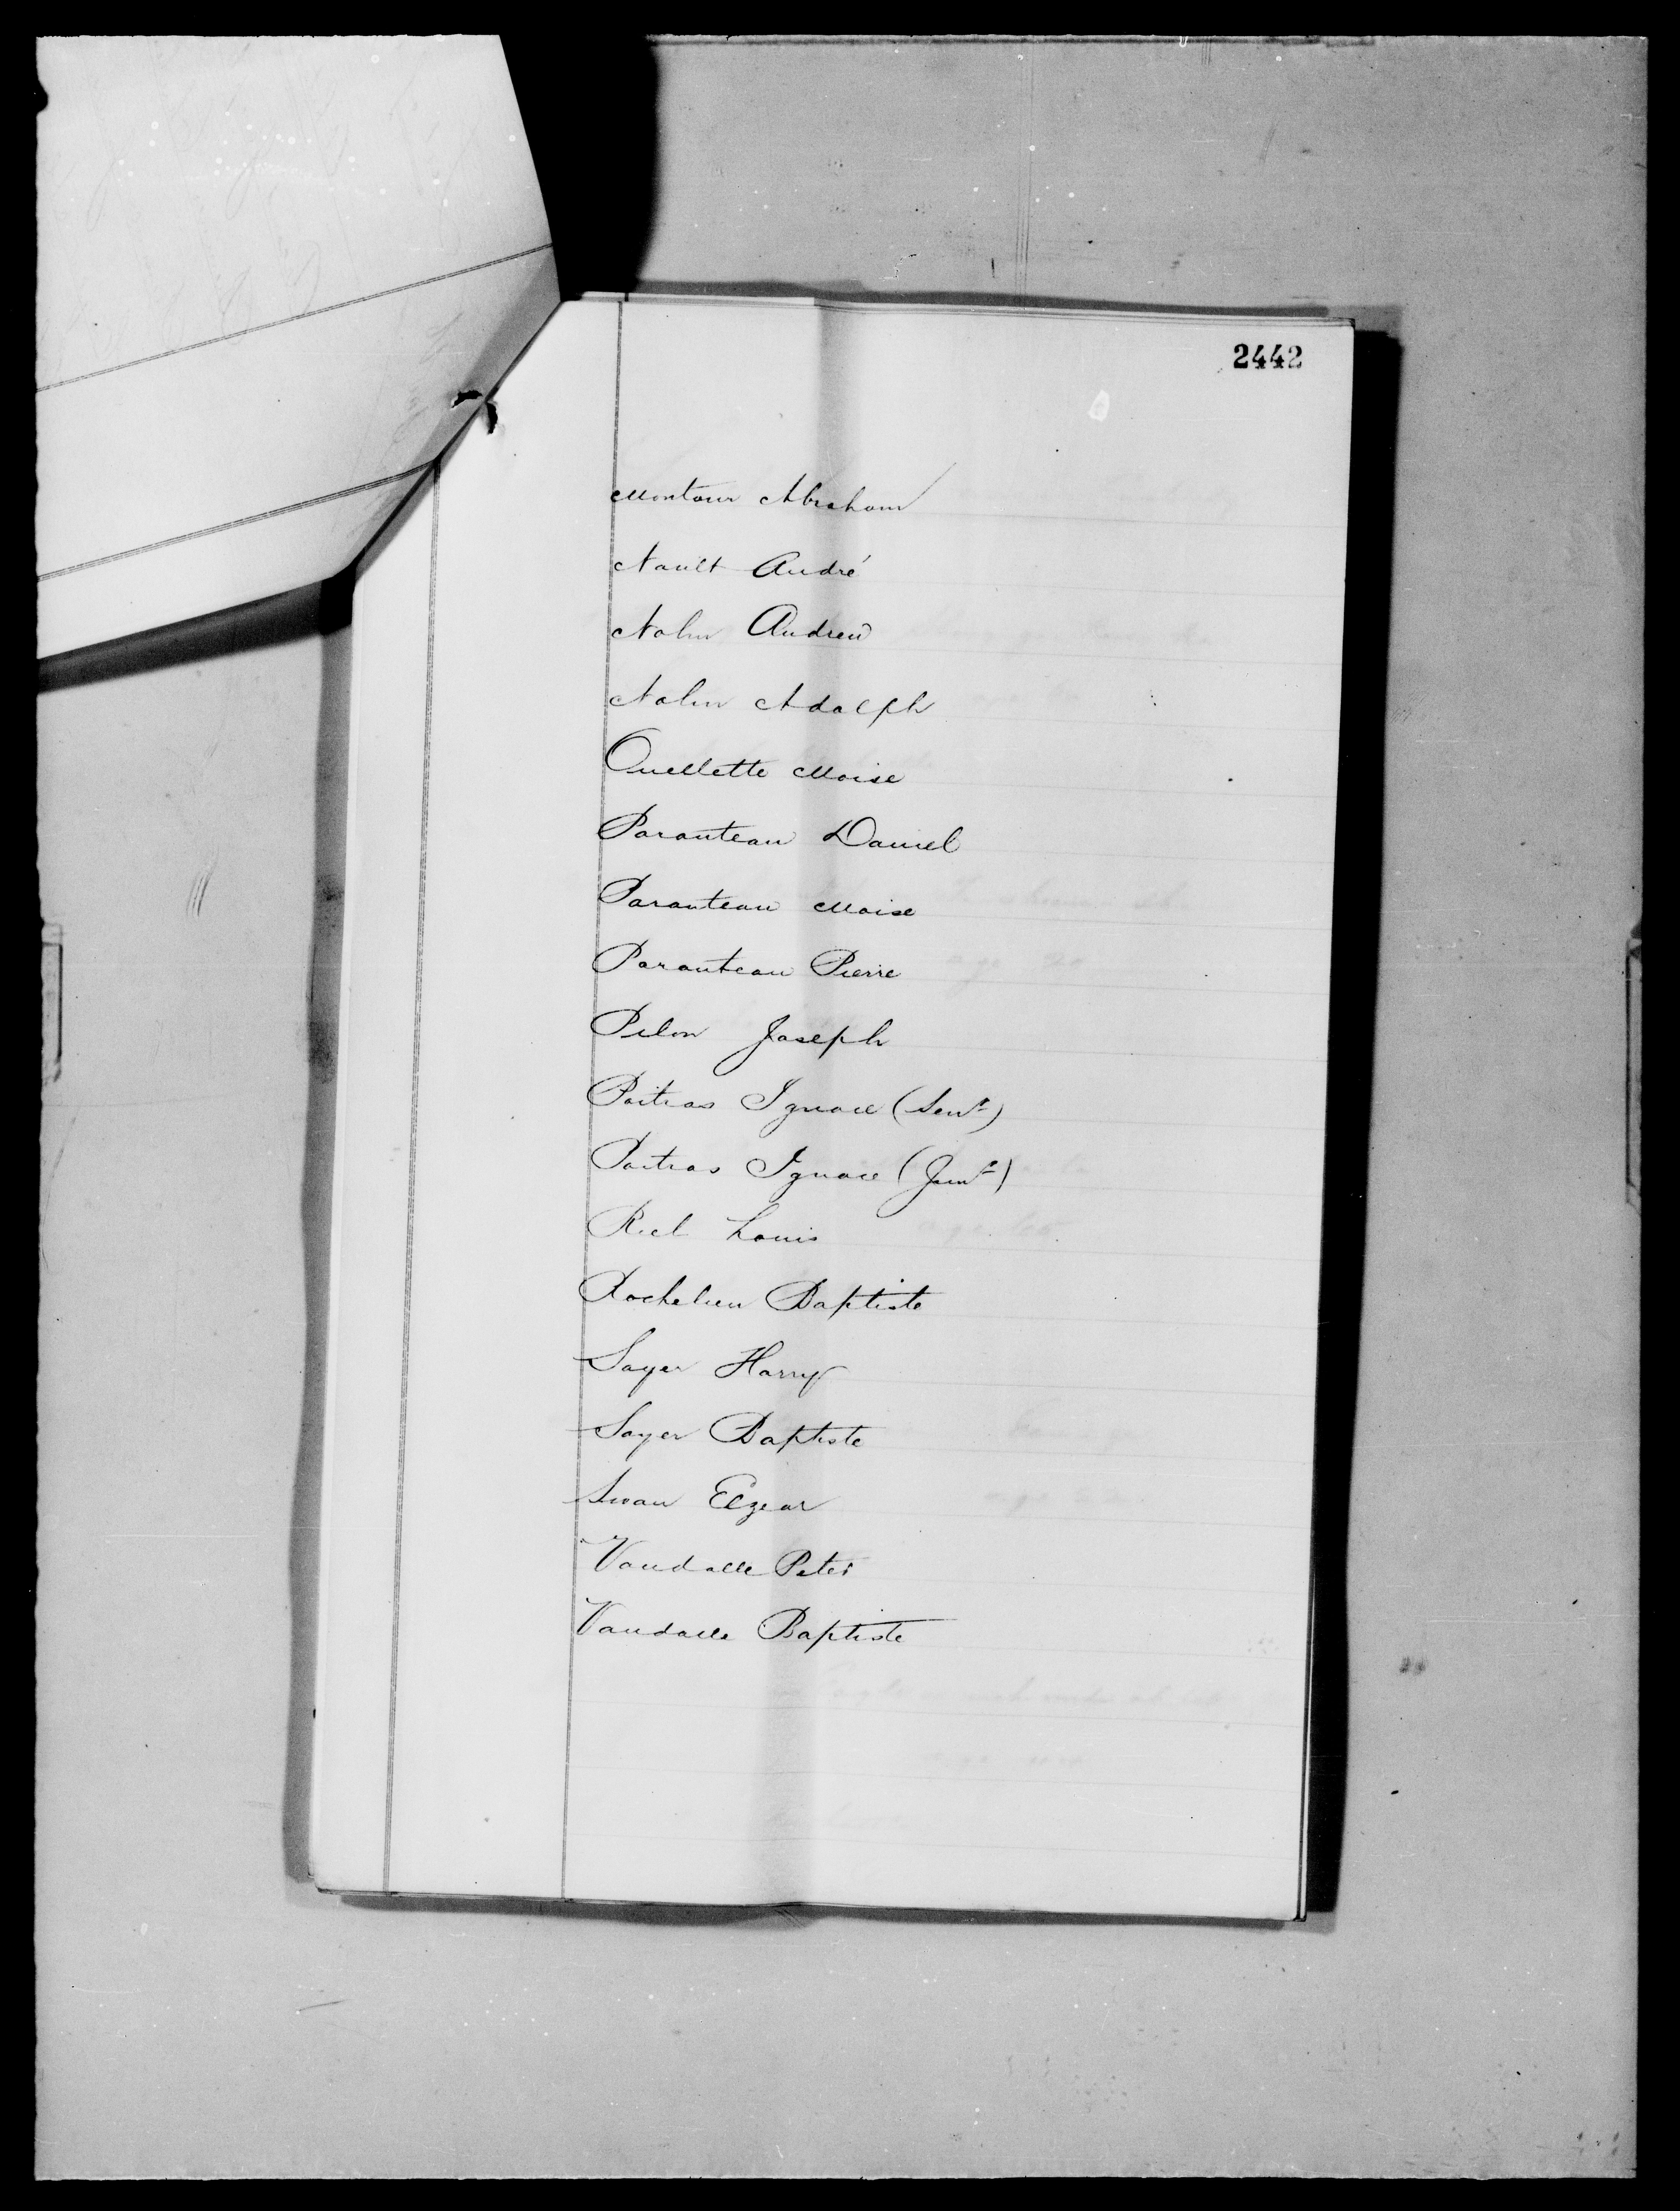 2442
Montour Abraham
Nault André
Nolin Andrew
Nolin Adolph
Ouellette Moise
Paranteau Daniel
Paranteau Moise
Paranteau Pierre
Pilon Joseph
Poitras Ignace (Senr)
Poitras Ignace (Junr)
Riel Louis
Rochelieu Baptiste
Sayer Harry
Sayer Baptiste
Swan Elzear
Vandalle Peter
Vandalle Baptiste